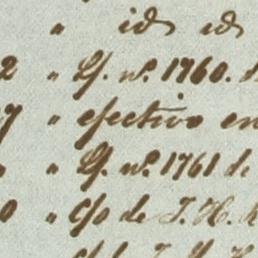 " id id
2 " Lf. nº. 1760.
7 " efectivo en
" Lf. nº. 1761 de
0 " c/o de J. H.